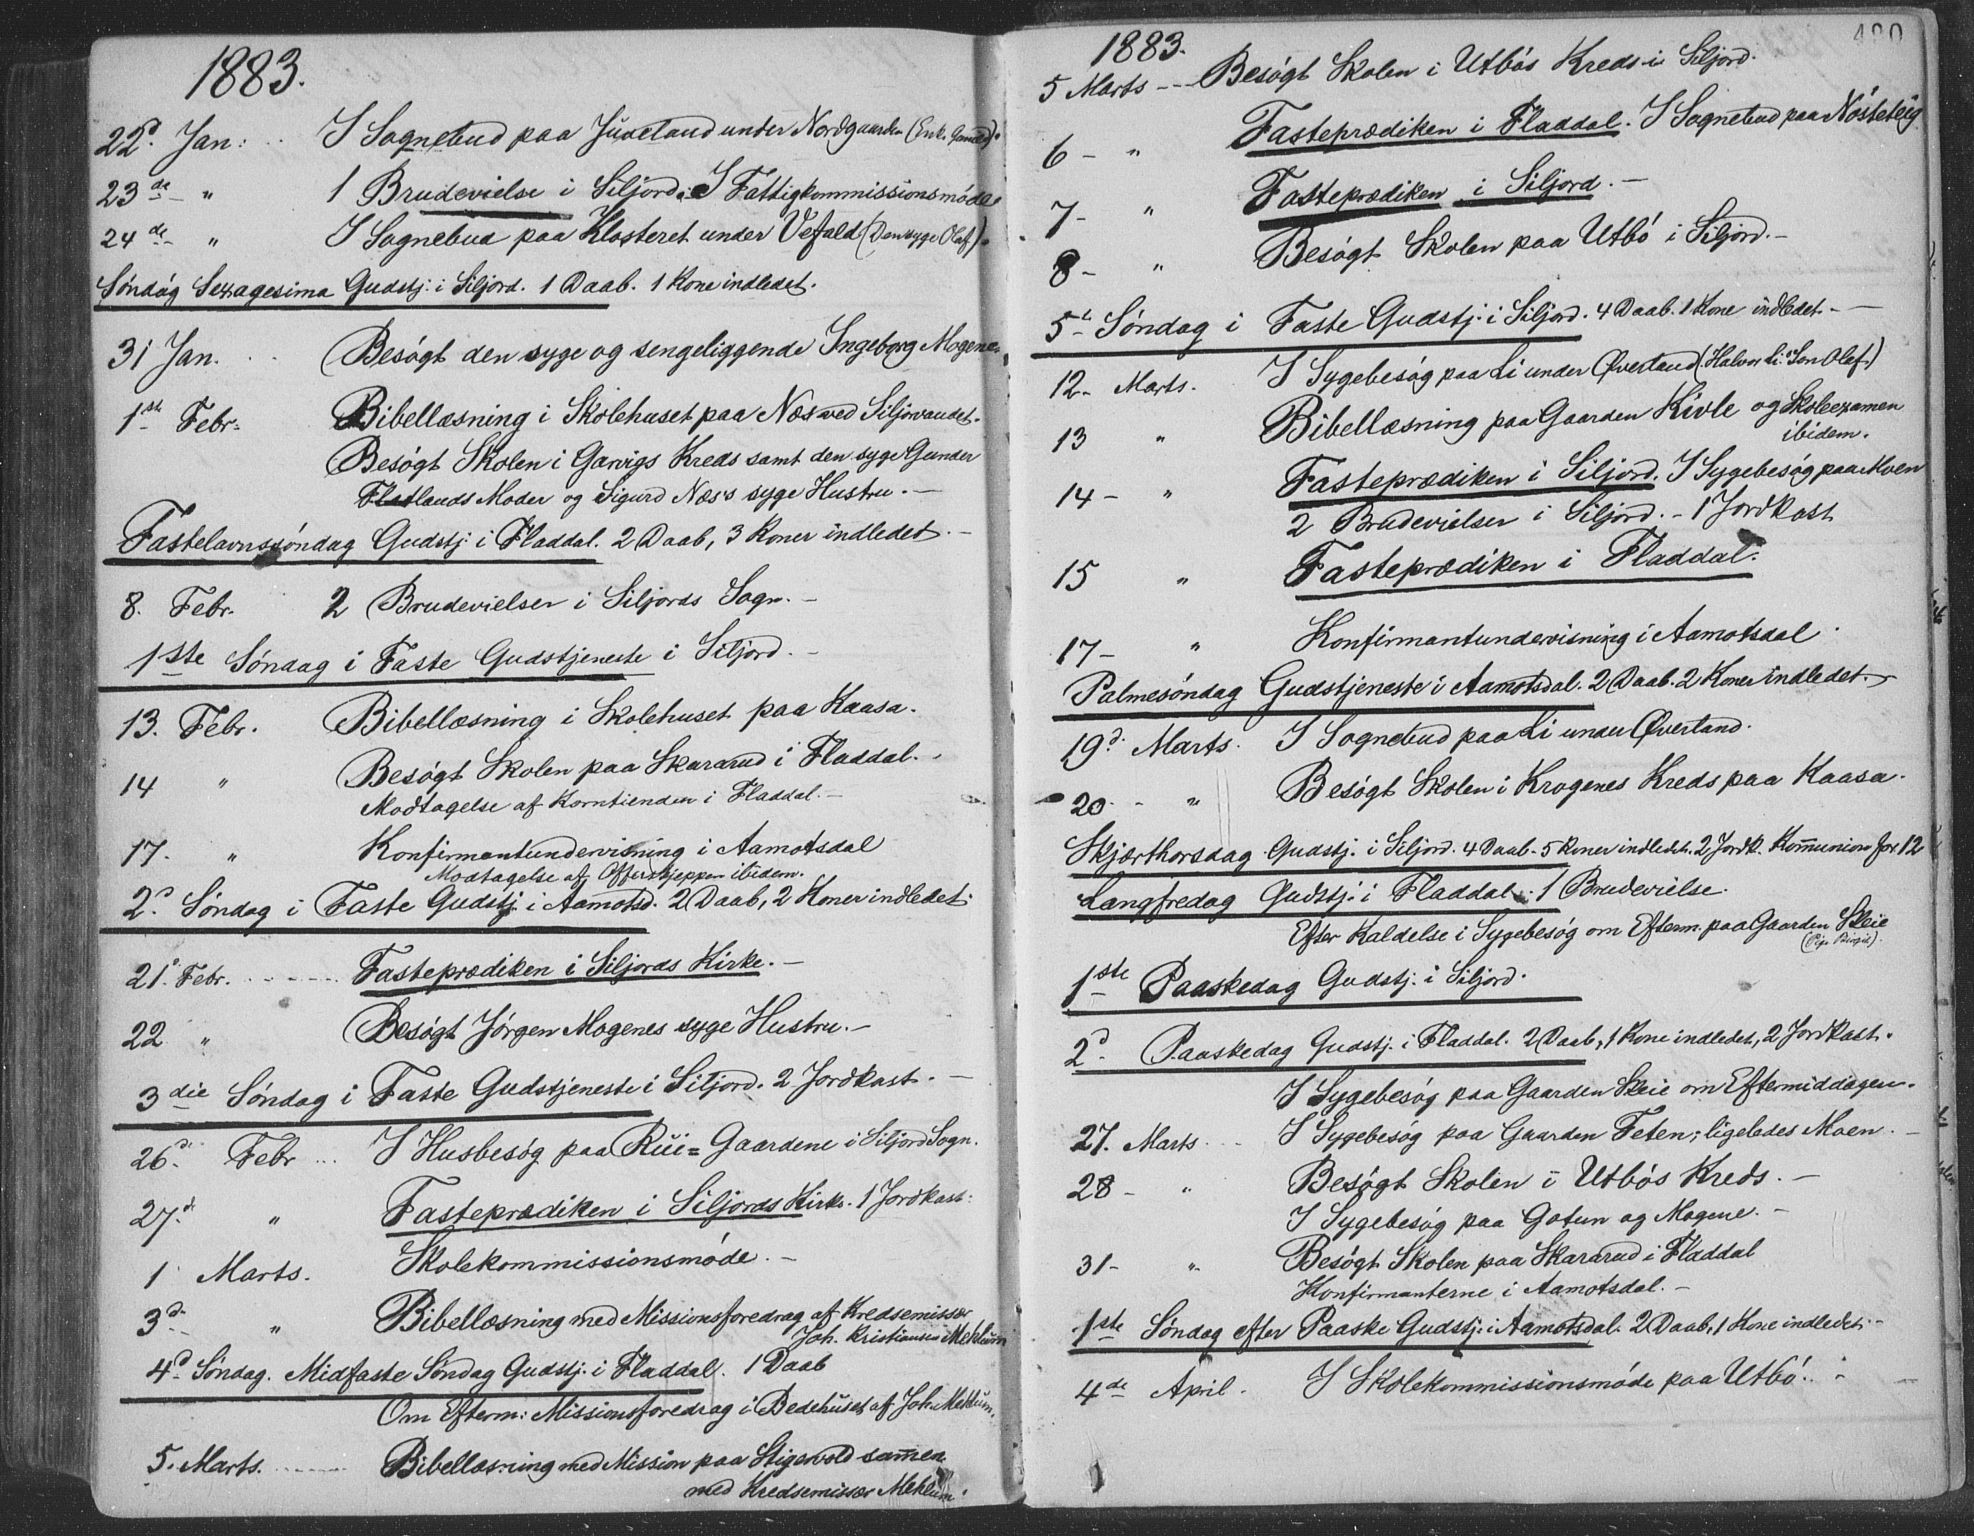 1883.
22d Jan: .. I Sognebud paa Juveland under Nordgaarden (Enk. Gunild).
23de " 1 Brudevielse i Siljord. I Fattigkommissionsmøde
24de " I Sognebud paa Klosteret under Vefald (Den syge Olaf).
Søndag Sexagesima Gudstj: i Siljord. 1 Daab. 1 Kone indledet.
31 Jan. .. Besøgt den syge og sengeliggende Ingeborg Mogene.
1st Febr: Bibellæsning i Skolehuset paa Næs ved Siljorvandet.
Besøgt Skolen i Garvigs Kreds samt den syge Gunder
Flatlands Moder og Sigurd Næs's syge Hustru. —
Fastelavnssøndag Gudstj i Fladdal. 2 Daab, 3 Koner indledet. —
8. Febr. 2 Brudevielser i Siljords Sogn. —
1ste Søndag i Faste Gudstjeneste i Siljord. —
13. Febr. Bibellæsning i Skolehuset paa Kaasa.
14 " Besøgt Skolen paa Skararud i Fladdal. -
Modtagelse af Korntienden i Fladdal. —
17. " Konfirmantundervisning i Aamotsdal
Modtagelse af Offerskjeppen ibidem.
2d Søndag i Faste Gudstj i Aamotsd. 2 Daab, 2 Koner indledet.
21d Febr. ------ Fasteprædiken i Siljords Kirke. —
22 " Besøgt Jørgen Mogenes syge Hustru. —
3die Søndag i Faste Gudstjeneste i Siljord. 2 Jordkast. —
26d. Febr ... I Husbesøg paa Rui= Gaardene i Siljord Sogn.
27.d " Fasteprædiken i Siljords Kirke. 1 Jordkast:
1 Marts. Skolekommissionsmøde. —
3d " Bibellæsning med Missionsforedrag af Kredsemissær
Joh. Kristiansen Meklum
4d Søndag. Midfaste Søndag Gudstj: i Fladdal. 1 Daab
Om Efterm: Missionsforedrag i Bedehuset af Joh. Meklum.
5. Marts. ------ Bibellæsning med Mission paa Stigervold sammen
med Kredsemissær Meklum.
480
1883.
5 Marts --- Besøgt Skolen i Utbøs Kreds i Siljord.
6 - " Fasteprædiken i Fladdal. I Sognebud paa Nösteteig
7 - " Fasteprædiken i Siljord. —
8 - " Besøgt Skolen paa Utbø i Siljord. —
5t Søndag i Faste Gudstj. i Siljord. 4 Daab. 1 Kone indledet. —
12 - Marts. I Sygebesøg paa Li under Øverland (Halvor Li's Søn Olaf)
13 " Bibellæsning paa Gaarden Kivle og Skoleexamen
ibidem.
14 - " Fasteprædiken i Siljord. I Sygebesøg paa Moen
2 Brudevielser i Siljord. - 1 Jordkast
15 " Fasteprædiken i Fladdal.
17 - " Konfirmantundervisning i Aamotsdal
Palmesøndag Gudstjeneste i Aamotsdal. 2 Daab. 2 Koner indledet. —
19d. Marts. I Sognebud paa Li under Øverland.
20 - " Besøgt Skolen i Krogenes Kreds paa Kaasa.
Skjærthorsdag Gudstj. i Siljord. 4 Daab. 5 Koner indledet. 2 Jordk. Kommunion for 12
Langfredag Gudstj. i Fladdal. 1 Brudevielse.
Efter Kaldelse i Sygebesøg om Efterm. paa Gaarden Skeie
(Pige Birgit).
1ste Paaskedag Gudstj. i Siljord.
2d Paaskedag Gudstj. i Fladdal. 2 Daab, 1 Kone indledet, 2 Jordkast.
I Sygebesøg paa Gaarden Skeie om Eftermiddagen.
27. Marts .. I Sygebesøg paa Gaarden Feten; ligeledes Moen. —
28 - " Besøgt Skolen i Utbøs Kreds. —
I Sygebesøg paa Gotun og Mogene. —
31 - " Besøgt Skolen paa Skararud i Fladdal
Konfirmanterne i Aamotsdal. —
1ste Søndag efter Paaske Gudstj: i Aamotsdal. 2 Daab, 1 Kone indledet. —
4de April. I Skolekommissionsmøde paa Utbø. —